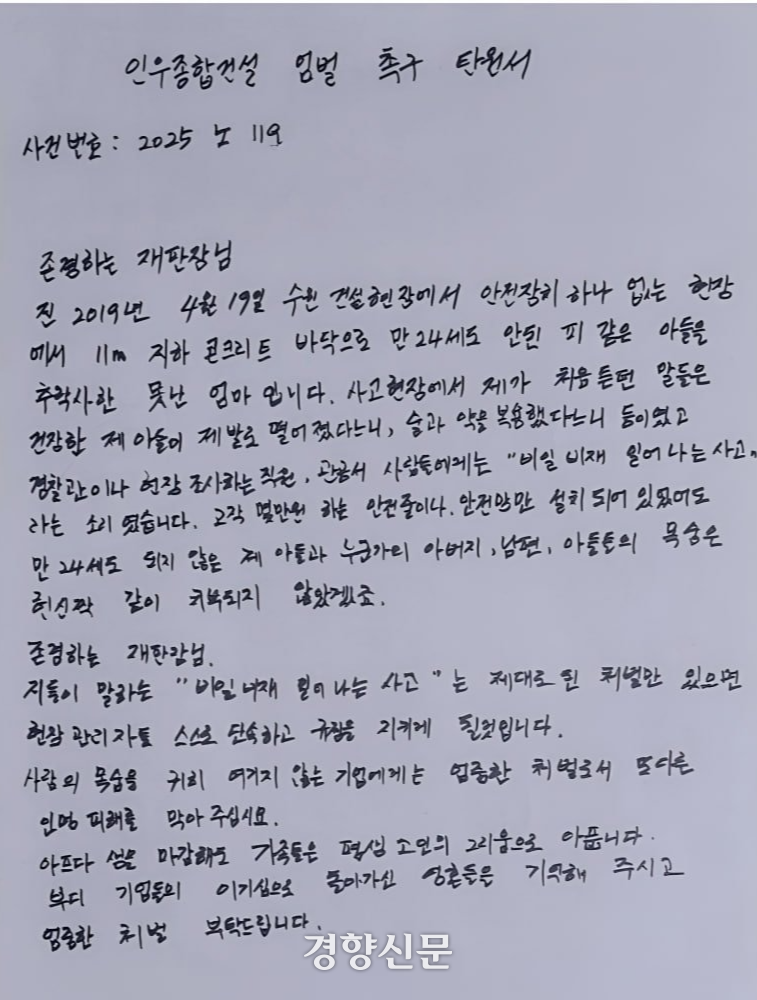 인우종합건설 엄벌 촉구 탄원서
사건번호 : 2025 노 119
존경하는 재판장님
전 2019년 4월 19일 수원 건설현장에서 안전장치 하나 없는 현장
에서 11m 지하 콘크리트 바닥으로 만24세도 안된 피 같은 아들을
추락사한 못난 엄마 입니다. 사고현장에서 제가 처음 듣던 말들은
건장한 제 아들이 제 발로 떨어졌다느니, 술과 약을 복용했다느니 등이였고
경찰관이나 현장 조사하는 직원, 관공서 사람들에게는 "비일 비재 일어 나는 사고"
라는 소리 였습니다. 고작 몇만원 하는 안전줄이나. 안전망만 설치 되어 있었어도
만 24세도 되지 않은 제 아들과 누군가의 아버지, 남편, 아들들의 목숨은
헌신짝 같이 취부되지 않았겠죠.
존경하는 재판장님.
저들이 말하는 "비일 비재 일어 나는 사고" 는 제대로 된 처벌만 있으면
현장 관리자도 스스로 단속하고 규칙을 지키게 될것입니다.
사람의 목숨을 귀히 여기지 않는 기업에게는 엄중한 처벌로서 또다른
인명 피해를 막아 주십시요.
아프다 삶을 마감해도 가족들은 평생 그리움으로 아픕니다.
부디 기업들의 이기심으로 돌아가신 영혼들을 기억해 주시고
엄중한 처벌 부탁드립니다.
경향신문